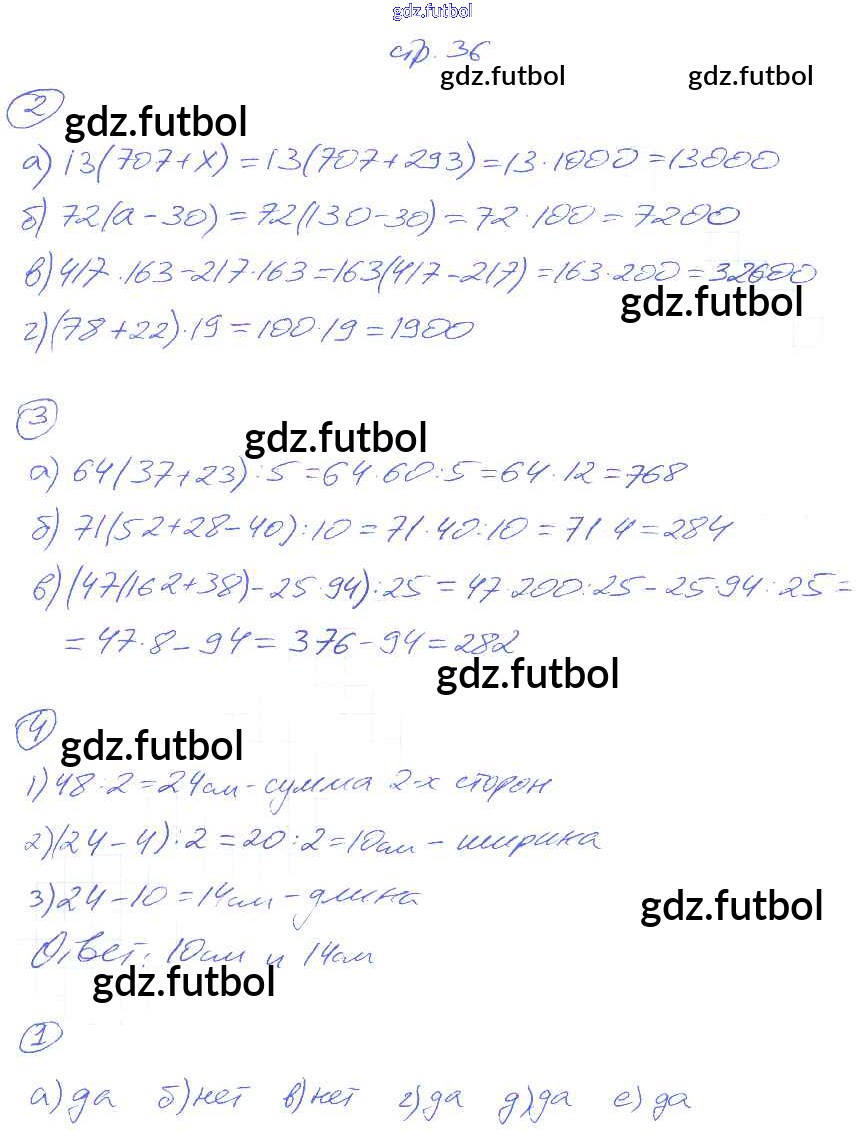 gdz.futbol
стр. 36
gdz.futbol gdz.futbol
2 gdz.futbol
а) 13(707+х) = 13(707+293) = 13·1000 = 13000
б) 72(а-30) = 72(130-30) = 72·100 = 7200
в) 417·163-217·163 = 163(417-217) = 163·200 = 32600
gdz.futbol
г) (78+22)·19 = 100·19 = 1900
3
gdz.futbol
а) 64(37+23):5 = 64·60:5 = 64·12 = 768
б) 71(52+28-40):10 = 71·40:10 = 71·4 = 284
в) (47(162+38)-25·94):25 = 47·200:25-25·94:25 =
= 47·8-94 = 376-94 = 282
gdz.futbol
4 gdz.futbol
1) 48:2=24см-сумма 2-х сторон
2) (24-4):2=20:2=10см-ширина
3) 24-10=14см-длина
gdz.futbol
Ответ: 10см и 14см
gdz.futbol
1
а) да б) нет в) нет г) да д) да е) да